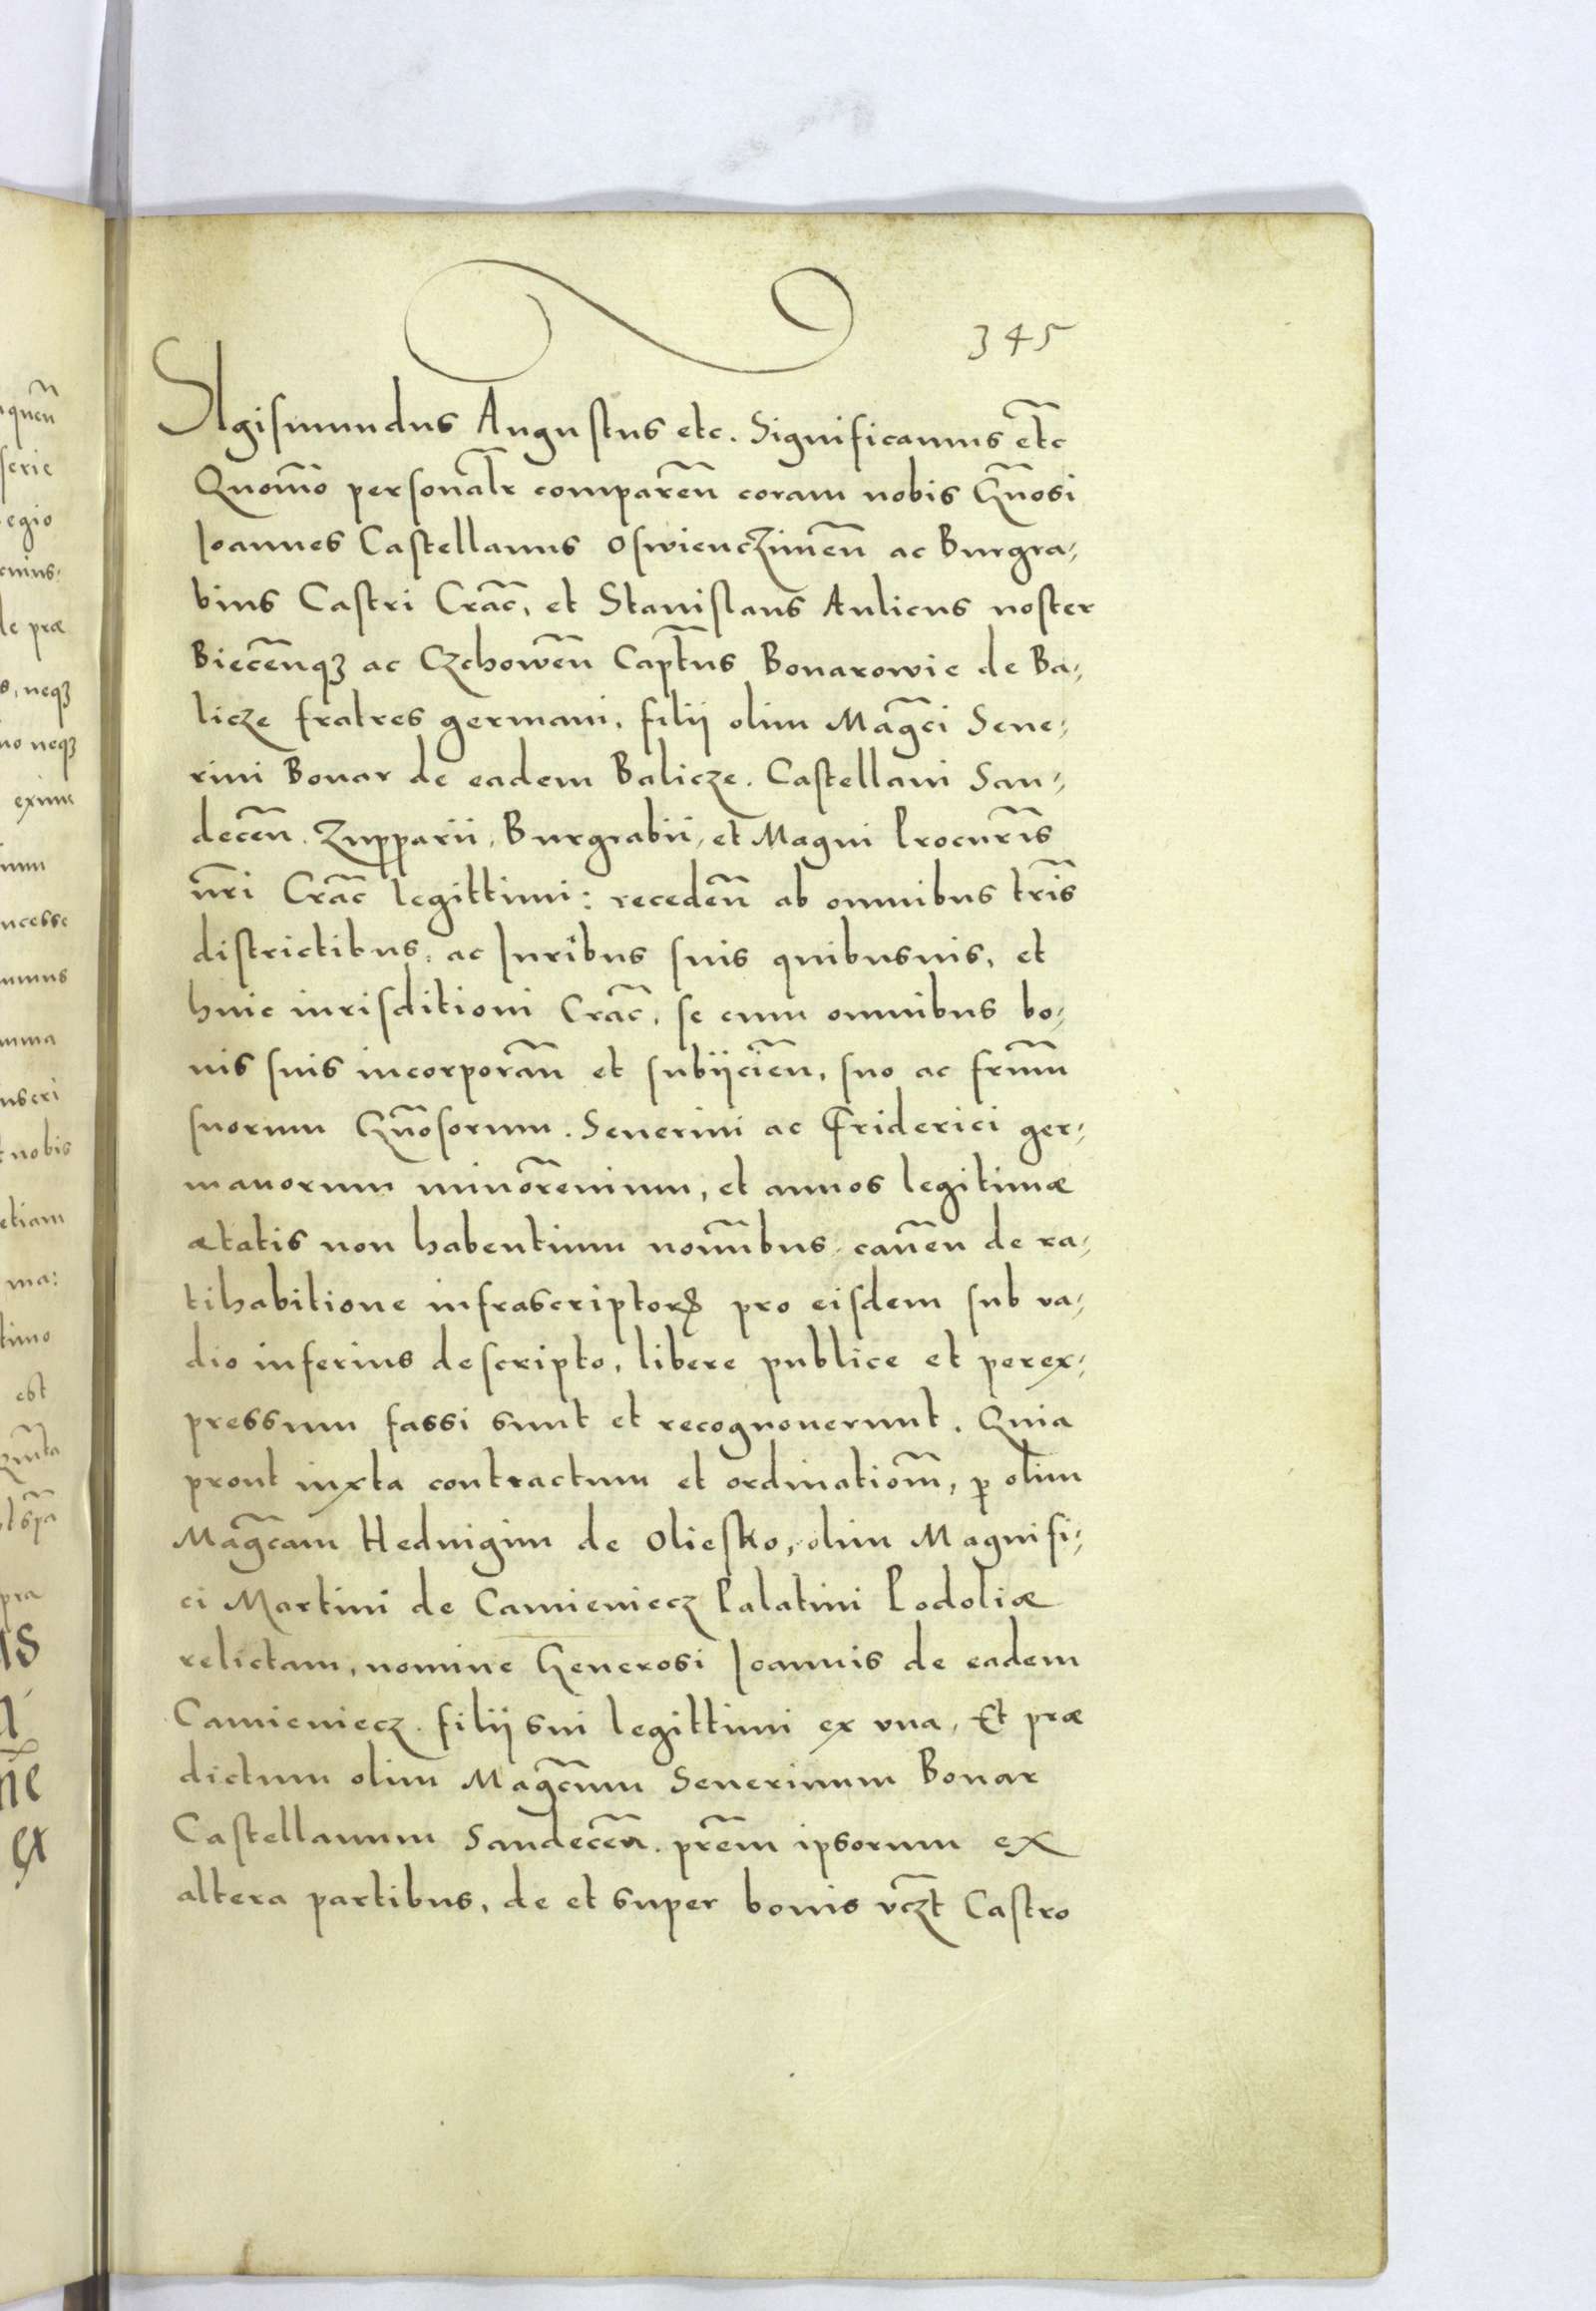 345
SIgismundus Augustus etc. Significamus etc̃
Quom̃o personal̃r comparen̄ coram nobis Gn̄osi
Ioannes Castellanus Oswienczimen̄ ac Burgra,
bius Castri Crac̄, et Stanislaus Aulicus noster
Biecen̄qꝫ ac Czchowen̄ Capt̄us Bonarowie de Ba,
licze fratres germani, filii olim Mag̃ci Seue,
rini Bonar de eadem Balicze. Castellani San,
decen̄. Zupparii, Burgrabii, et Magni Procur̃is
nr̃i Crac̄ legittimi: receden̄ ab omnibus tr̃is
districtibus, ac Iuribus suis quibusuis, et
huic iurisditioni Crac̄, se cum omnibus bo,
nis suis incorporan̄ et subiicien̄, suo ac frum̄
suorum Gn̄osorum. Seuerini ac Friderici ger,
manorum minor̃ennium, et annos legitimæ
ætatis non habentium nom̄nibus, cauen̄ de ra,
tihabitione infrascriptorꝝ pro eisdem sub va,
dio inferius descripto, libere publice et perex,
pressum fassi sunt et recognouerunt. Quia
prout iuxta contractum et ordinatiom̄, ꝑ olim
Mag̃cam Heduigim de Oliesko, olim Magnifi,
ci Martini de Camieniecz Palatini Podoliæ
relictam, nomine Generosi Ioannis de eadem
Camieniecz. filii sui legittimi ex vna, Et præ
dictum olim Mag̃cum Seuerinum Bonar
Castellanum Sandecen̄. pr̃em ipsorum ex
altera partibus, de et super bonis vcz̃t Castro